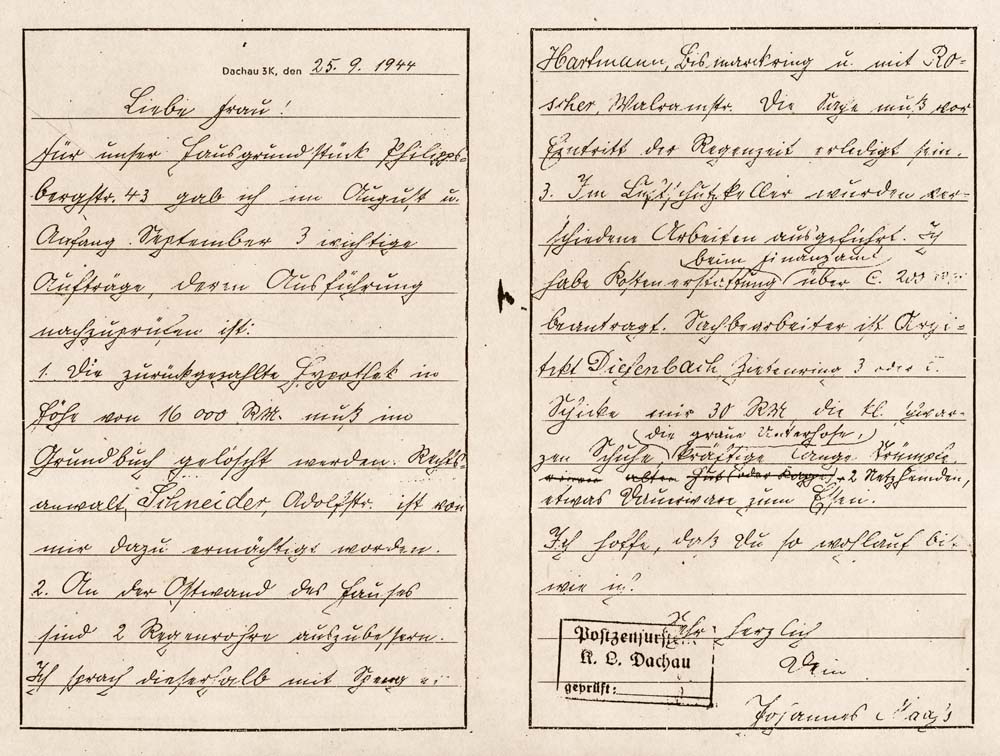 Dachau 3K, den 25. 9. 1944
Liebe Frau!
Für unser Hausgrundstück Philipps-
bergstr. 43 gab ich im August u.
Anfang September 3 wichtige
Aufträge, deren Ausführung
nachzuprüfen ist:
1. Die zurückgezahlte Hypothek in
Höhe von 16 000 RM. muß im
Grundbuch gelöscht werden. Rechts-
anwalt Schneider, Adolfstr. ist von
mir dazu ermächtigt worden.
2. An der Ostwand des Hauses
sind 2 Regenrohre auszubessern.
Ich sprach dieserhalb mit
Hartmann, Bismarckring u. mit Ro-
scher, Walramstr. Die Sache muß vor
Eintritt der Regenzeit erledigt sein.
3. Im Luftschutzkeller wurden ver-
schiedene Arbeiten ausgeführt. Ich
beim Finanzamt
habe Kostenerstattung über c. 200
beantragt. Sachbearbeiter ist Archi-
tekt Diefenbach, Zietenring 3 oder 5.
Schicke mir 30 RM die kl. schwar-
die graue Unterhose,
zen Schuhe kräftige lange Strümpfe
einen alten Hut (oder Kappe) 2 Netzhemden,
etwas Dauerware zum Essen.
Ich hoffe, daß Du so wohlauf bist
wie ich.
Sehr herzlich
Dein
Johannes Maaß
Postzensurst
K. L. Dachau
geprüft: